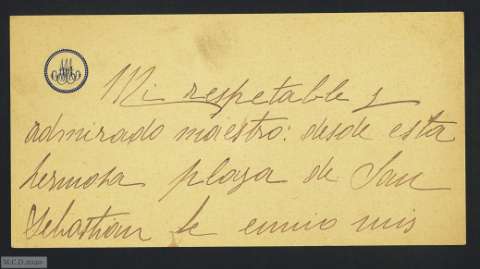 Mi respetable y
admirado maestro: desde esta
hermosa plaza de San
Sebastian le envio mis